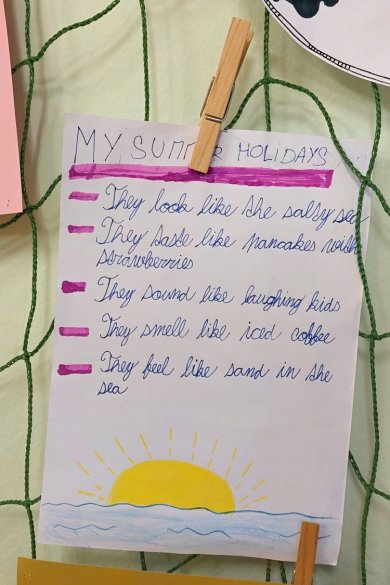 MY SUMMER HOLIDAYS...
They look like the salty sea
They taste like pancakes with
strawberries
They sound like laughing kids
They smell like iced coffee
They feel like sand in the
sea